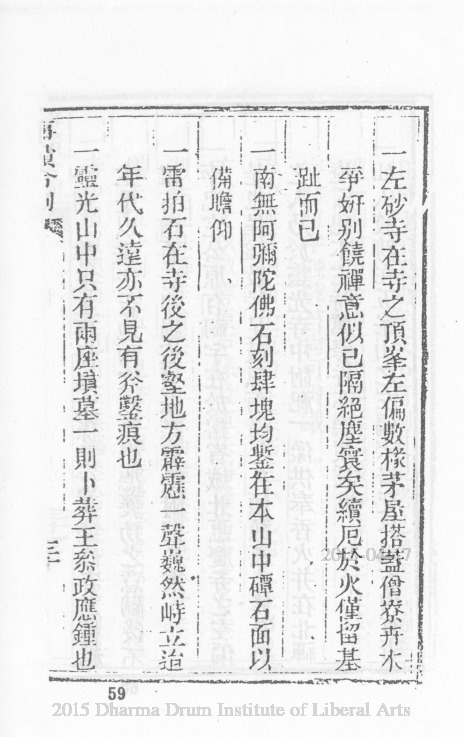 一左砂寺在寺之頂峯左偏數椽茅屋搭蓋僧寮卉木
爭妍別饒禪意似已隔絕塵寰矣續厄於火僅留基
趾而已
一南無阿彌陀佛石刻肆塊均鏨在本山中磹石面以
備瞻仰
一雷拍石在寺後之後壑地方霹靂一聲巍然峙立迨
年代久遠亦不見有斧鑿痕也
一靈光山中只有兩座墳墓一則卜葬王叅政應鍾也
59
2015 Dharma Drum Institute of Liberal Arts